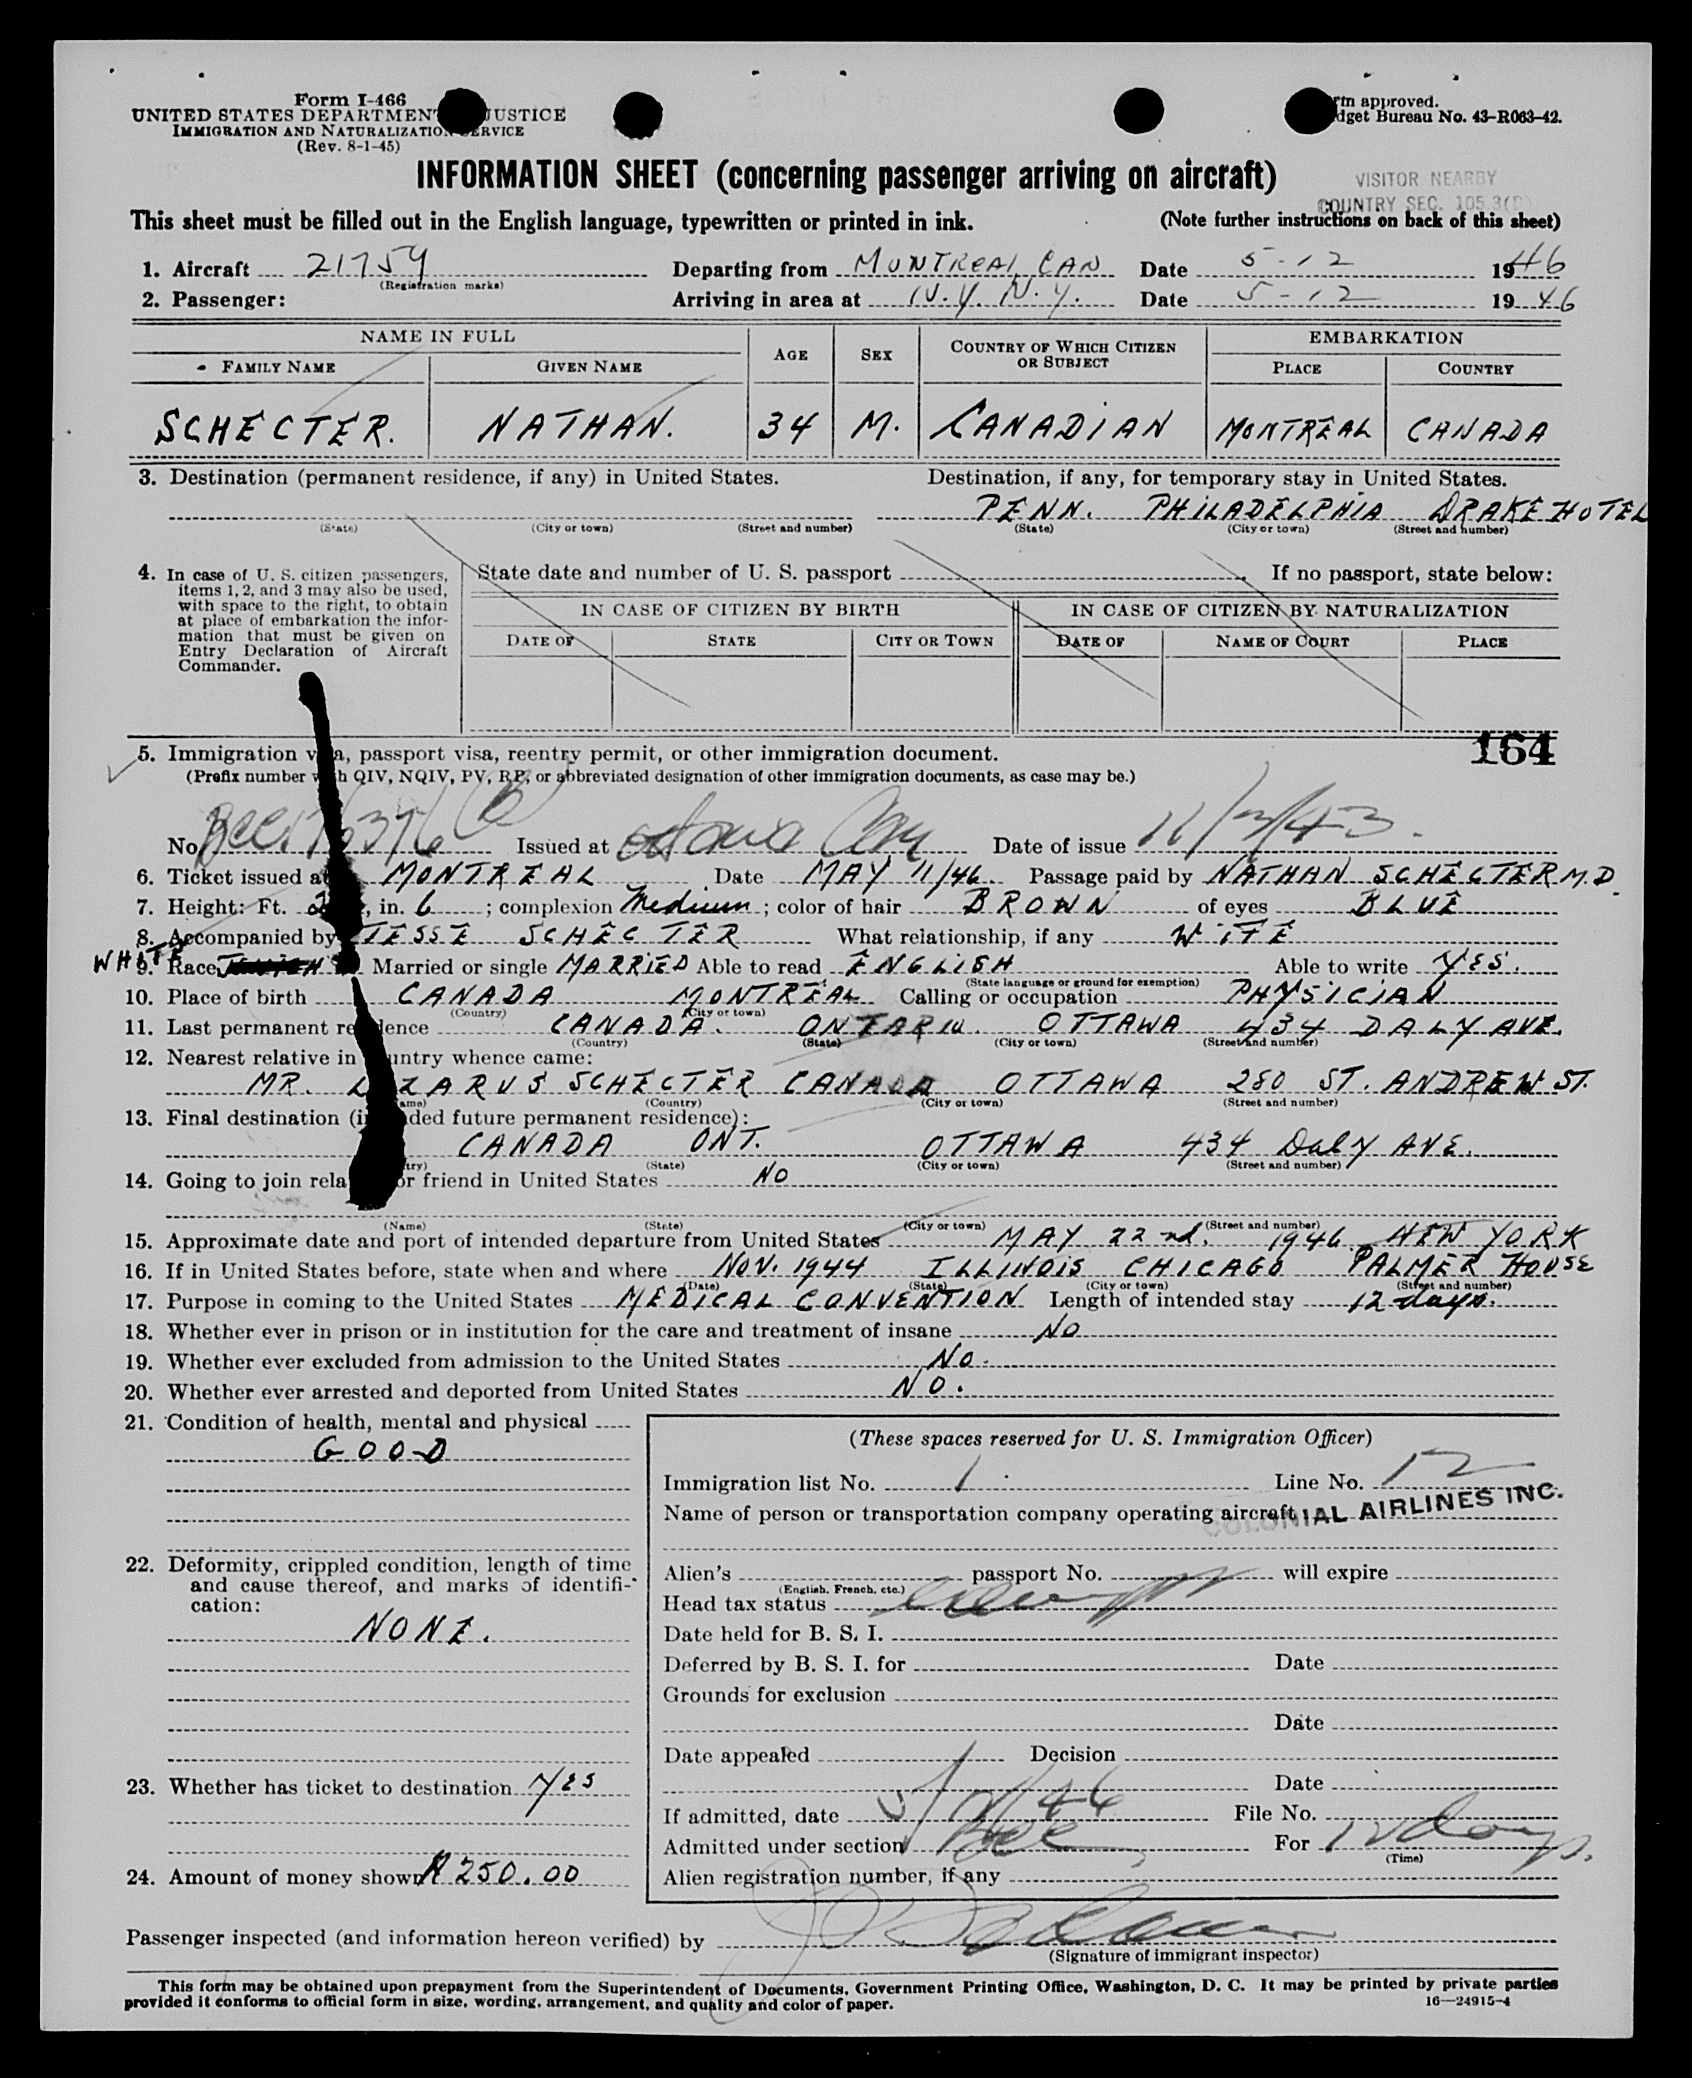 Form I-466
UNITED STATES DEPARTMENT JUSTICE
IMMIGRATION AND NATURALIZATION SERVICE
(Rev. 8-1-45)
approved.
Bureau No. 43-R063-42.
INFORMATION SHEET (concerning passenger arriving on aircraft)
VISITOR NEARBY
COUNTRY SEC. 105.3
This sheet must be filled out in the English language, typewritten or printed in ink. (Note further instructions on back of this sheet)
1. Aircraft 21759 Departing from MONTREAL CAN Date 5-12 1946
(Registration marks)
2. Passenger: Arriving in area at N.Y. N.Y. Date 5-12 1946
NAME IN FULL AGE SEX COUNTRY OF WHICH CITIZEN OR SUBJECT EMBARKATION
FAMILY NAME GIVEN NAME PLACE COUNTRY
SCHECTER. NATHAN. 34 M. CANADIAN MONTREAL CANADA
3. Destination (permanent residence, if any) in United States. Destination, if any, for temporary stay in United States.
PENN. PHILADELPHIA DRAKE HOTEL
(State) (City or town) (Street and number) (State) (City or town) (Street and number)
4. In case of U. S. citizen passengers, items 1, 2, and 3 may also be used, with space to the right, to obtain at place of embarkation the information that must be given on Entry Declaration of Aircraft Commander.
State date and number of U. S. passport If no passport, state below:
IN CASE OF CITIZEN BY BIRTH IN CASE OF CITIZEN BY NATURALIZATION
DATE OF STATE CITY OR TOWN DATE OF NAME OF COURT PLACE
164
5. Immigration visa, passport visa, reentry permit, or other immigration document.
(Prefix number with QIV, NQIV, PV, RP, or abbreviated designation of other immigration documents, as case may be.)
No. Issued at Date of issue
6. Ticket issued at MONTREAL Date MAY 11/46 Passage paid by NATHAN SCHECTER M.D.
7. Height: Ft. , in. 6 ; complexion Medium ; color of hair BROWN of eyes BLUE
8. Accompanied by JESSE SCHECTER What relationship, if any WIFE
WHITE
9. Race Married or single MARRIED Able to read ENGLISH Able to write YES.
(State language or ground for exemption)
10. Place of birth CANADA MONTREAL Calling or occupation PHYSICIAN
(Country) (City or town)
11. Last permanent residence CANADA. ONTARIO. OTTAWA 434 DALY AVE.
(Country) (State) (City or town) (Street and number)
12. Nearest relative in country whence came:
MR. LAZARUS SCHECTER CANADA OTTAWA 280 ST. ANDREW ST.
(Name) (Country) (City or town) (Street and number)
13. Final destination (intended future permanent residence):
CANADA ONT. OTTAWA 434 Daly AVE.
(Country) (State) (City or town) (Street and number)
14. Going to join relative or friend in United States NO
(Name) (State) (City or town) (Street and number)
15. Approximate date and port of intended departure from United States MAY 22nd. 1946. NEW YORK
16. If in United States before, state when and where NOV. 1944 ILLINOIS CHICAGO PALMER HOUSE
(Date) (State) (City or town) (Street and number)
17. Purpose in coming to the United States MEDICAL CONVENTION Length of intended stay 12 days.
18. Whether ever in prison or in institution for the care and treatment of insane NO
19. Whether ever excluded from admission to the United States NO.
20. Whether ever arrested and deported from United States NO.
21. Condition of health, mental and physical
GOOD
22. Deformity, crippled condition, length of time and cause thereof, and marks of identification:
NONE.
23. Whether has ticket to destination YES
24. Amount of money shown $250.00
(These spaces reserved for U. S. Immigration Officer)
Immigration list No. 1 Line No. 12
Name of person or transportation company operating aircraft COLONIAL AIRLINES INC.
Alien's passport No. will expire
(English, French, etc.)
Head tax status
Date held for B. S. I.
Deferred by B. S. I. for Date
Grounds for exclusion
Date
Date appealed Decision
Date
If admitted, date 5/12/46 File No.
Admitted under section For 12 days.
(Time)
Alien registration number, if any
Passenger inspected (and information hereon verified) by
(Signature of immigrant inspector)
This form may be obtained upon prepayment from the Superintendent of Documents, Government Printing Office, Washington, D. C. It may be printed by private parties
provided it conforms to official form in size, wording, arrangement, and quality and color of paper.
16—24915-4